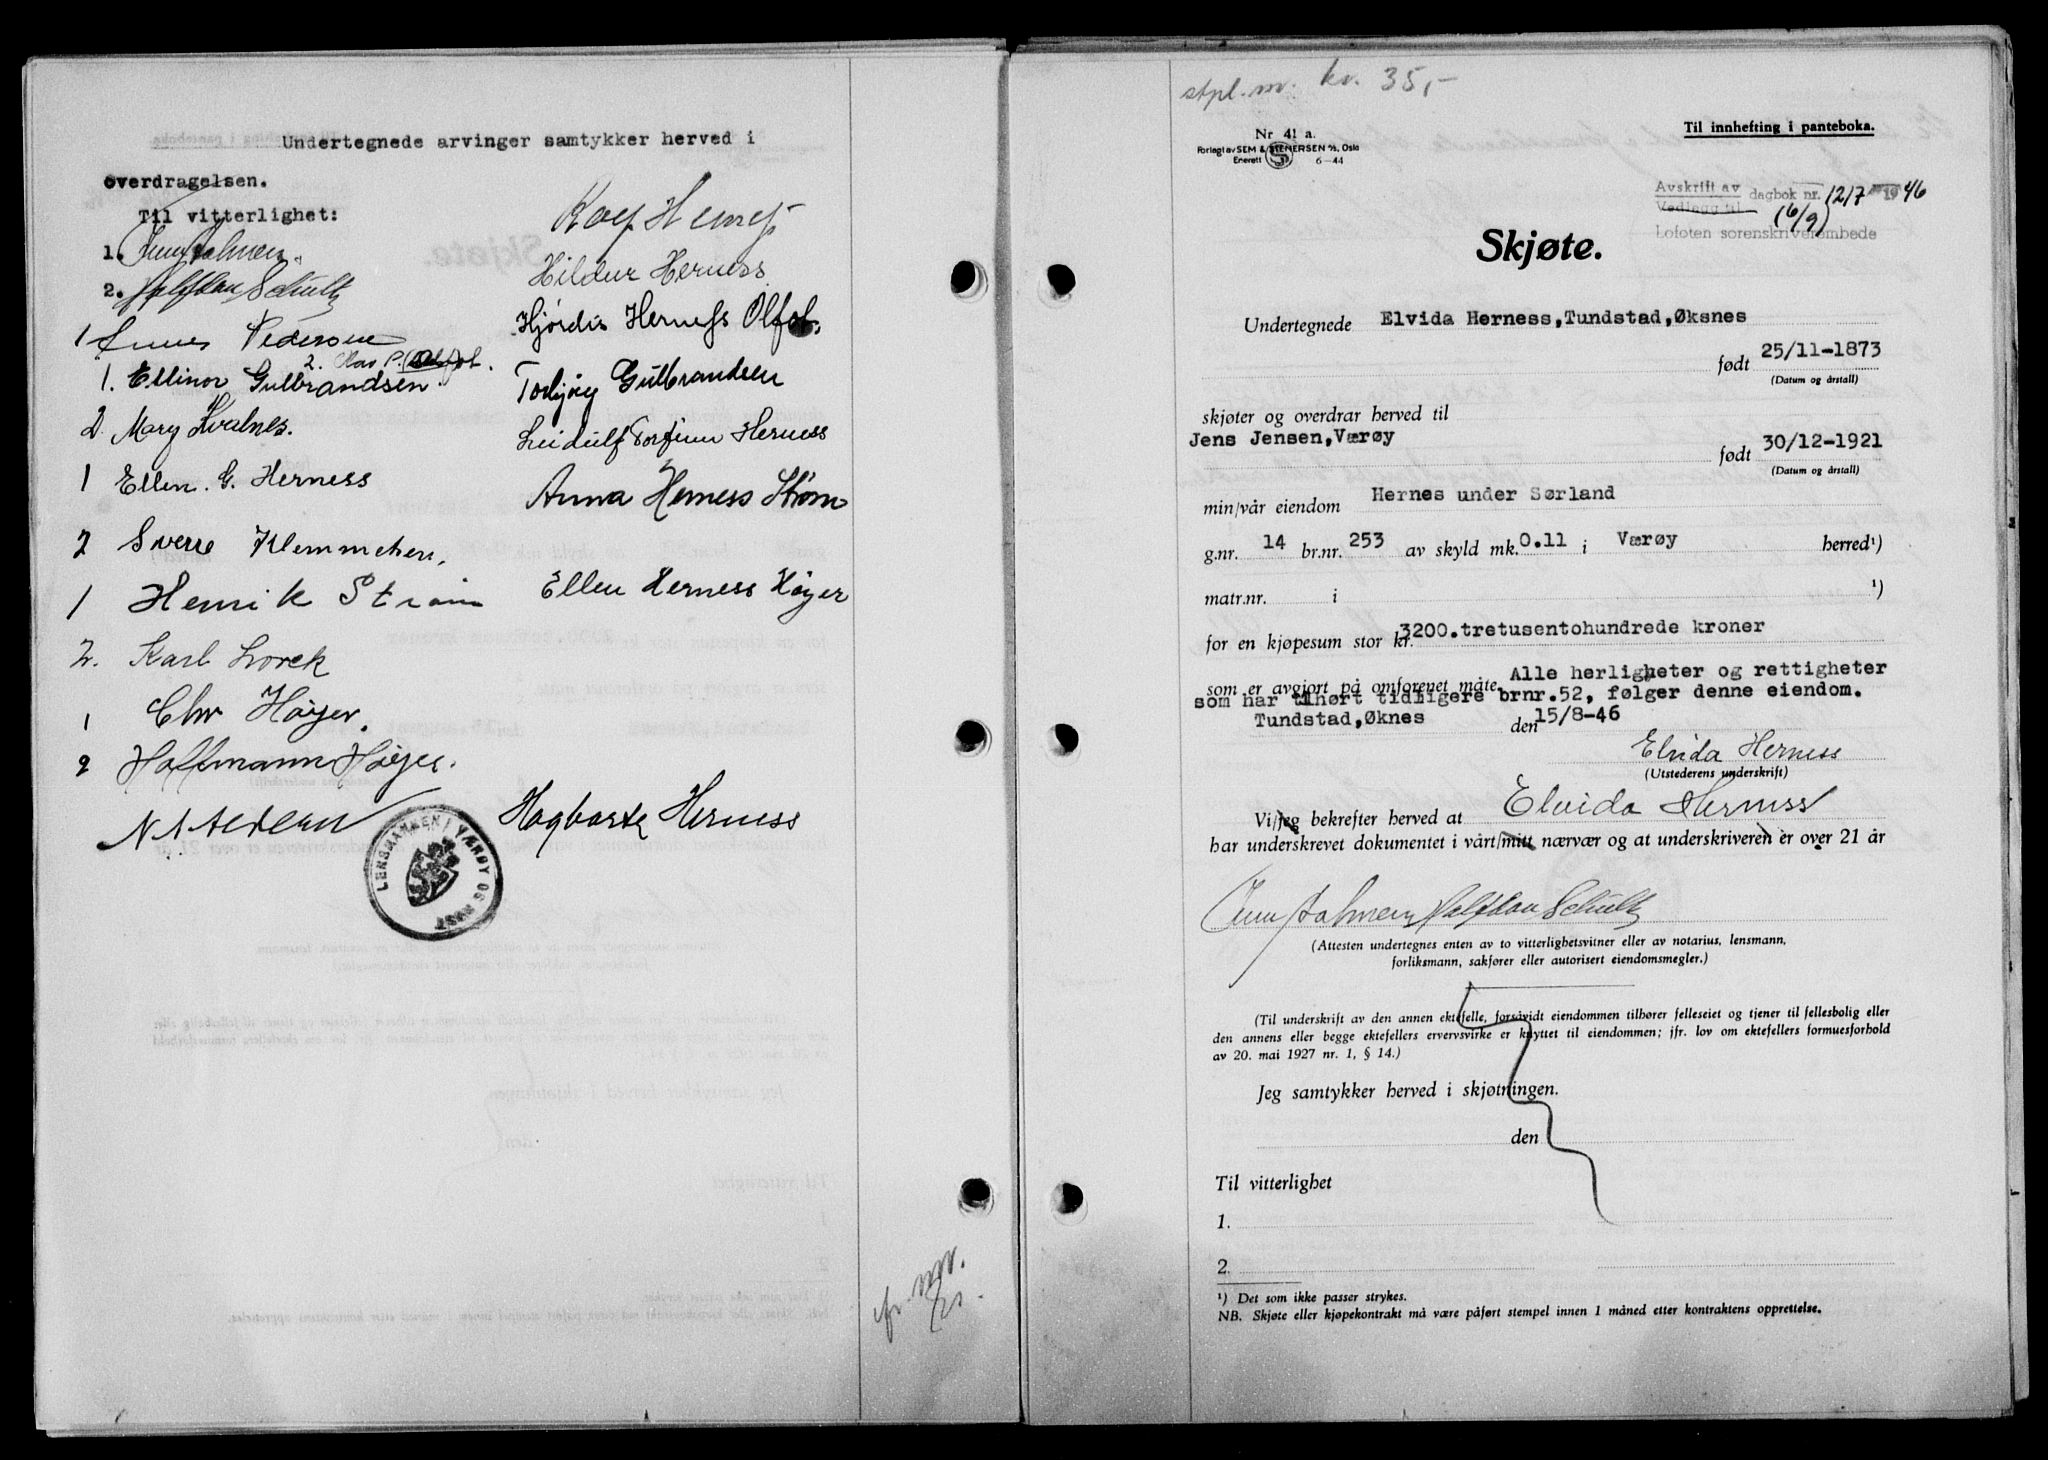 Undertegnede arvinger samtykker herved i
overdragelsen.
Til vitterlighet:
1.
2. Halfdan Schultz
1 Pedersen
2.
1. Ellinor Gulbrandsen
2 Mary Kvalnes.
1 Ellen. G. Herness
2 Sverre Klemmetsen,
1 Henrik Strøm
2. Karl Lorck
1 Chr Høyer.
2 Hoffmann Høyer.
Rolf Herness
Hildur Herness
Hjørdis Herness
Torbjørg Gulbrandsen
Leidulf Torfinn Herness
Anna Herness Strøm
Ellen Herness Høyer
Hagbarth Herness
LENSMANNEN I VÆRØY OG RØST
stpl. mr. kr. 35,-
Nr 41 a.
Forlagt av SEM & STENERSEN A/S, Oslo
Enerett S 6-44
Til innhefting i panteboka.
Avskrift av
Vedlegg til dagbok nr. 1217 1946
(6/9)
Lofoten sorenskriverembede
Skjøte.
Undertegnede Elvida Herness, Tundstad, Øksnes
født 25/11-1873
(Datum og årstall)
skjøter og overdrar herved til
Jens Jensen, Værøy
født 30/12-1921
(Datum og årstall)
min/vår eiendom Hernes under Sørland
g.nr. 14 br.nr. 253 av skyld mk. 0.11 i Værøy herred¹)
matr.nr. i ¹)
for en kjøpesum stor kr. 3200. tretusentohundrede kroner
som er avgjort på omforenet måte. Alle herligheter og rettigheter
som har tilhørt tidligere brnr. 52, følger denne eiendom.
Tundstad, Øknes den 15/8-46
Elvida Herness
(Utstederens underskrift)
Vi/jeg bekrefter herved at Elvida Herness
har underskrevet dokumentet i vårt/mitt nærvær og at underskriveren er over 21 år
Halfdan Schultz
(Attesten undertegnes enten av to vitterlighetsvitner eller av notarius, lensmann,
forliksmann, sakfører eller autorisert eiendomsmegler.)
(Til underskrift av den annen ektefelle, forsåvidt eiendommen tilhører felleseiet og tjener til fellesbolig eller
den annens eller begge ektefellers ervervsvirke er knyttet til eiendommen; jfr. lov om ektefellers formuesforhold
av 20. mai 1927 nr. 1, § 14.)
Jeg samtykker herved i skjøtningen.
den
Til vitterlighet
1.
2.
¹) Det som ikke passer strykes.
NB. Skjøte eller kjøpekontrakt må være påført stempel innen 1 måned etter kontraktens opprettelse.